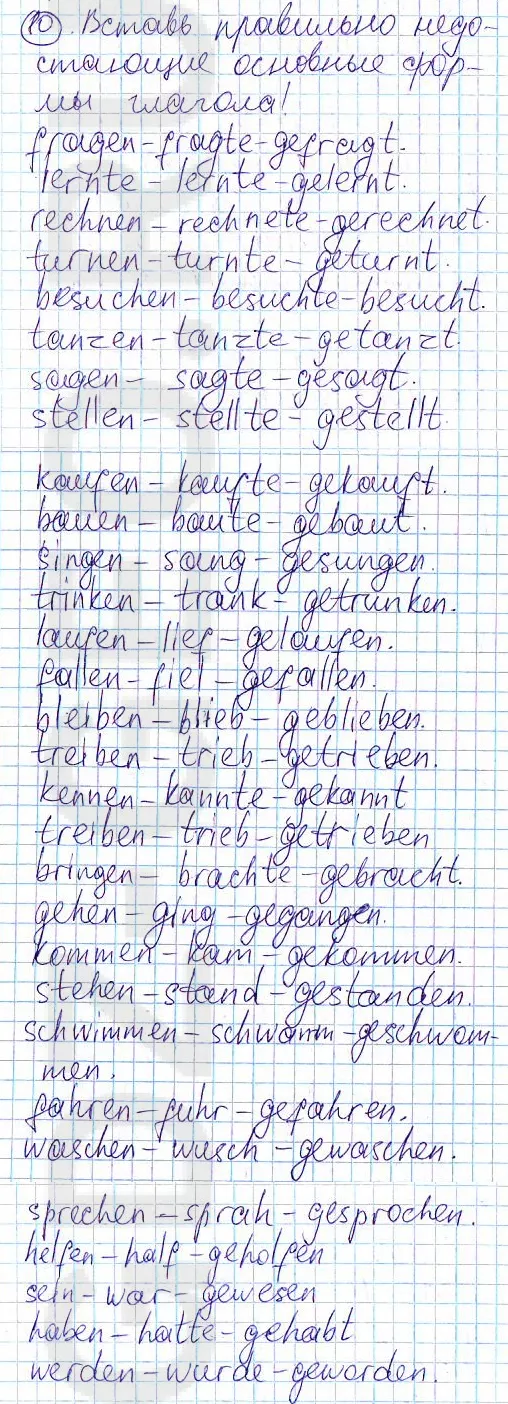 10. Вставь правильно недо-
стающие основные фор-
мы глагола!
fragen – fragte – gefragt.
lernte – lernte – gelernt.
rechnen – rechnete – gerechnet.
turnen – turnte – geturnt.
besuchen – besuchte – besucht.
tanzen – tanzte – getanzt.
sagen – sagte – gesagt.
stellen – stellte – gestellt
kaufen – kaufte – gekauft.
bauen – baute – gebaut.
singen – sang – gesungen.
trinken – trank – getrunken.
laufen – lief – gelaufen.
fallen – fiel – gefallen.
bleiben – blieb – geblieben.
treiben – trieb – getrieben.
kennen – kannte – gekannt
treiben – trieb – getrieben
bringen – brachte – gebracht.
gehen – ging – gegangen.
kommen – kam – gekommen.
stehen – stand – gestanden.
schwimmen – schwamm – geschwom-
men.
fahren – fuhr – gefahren.
waschen – wusch – gewaschen.
sprechen – sprah – gesprochen.
helfen – half – geholfen
sein – war – gewesen
haben – hatte – gehabt
werden – wurde – geworden.